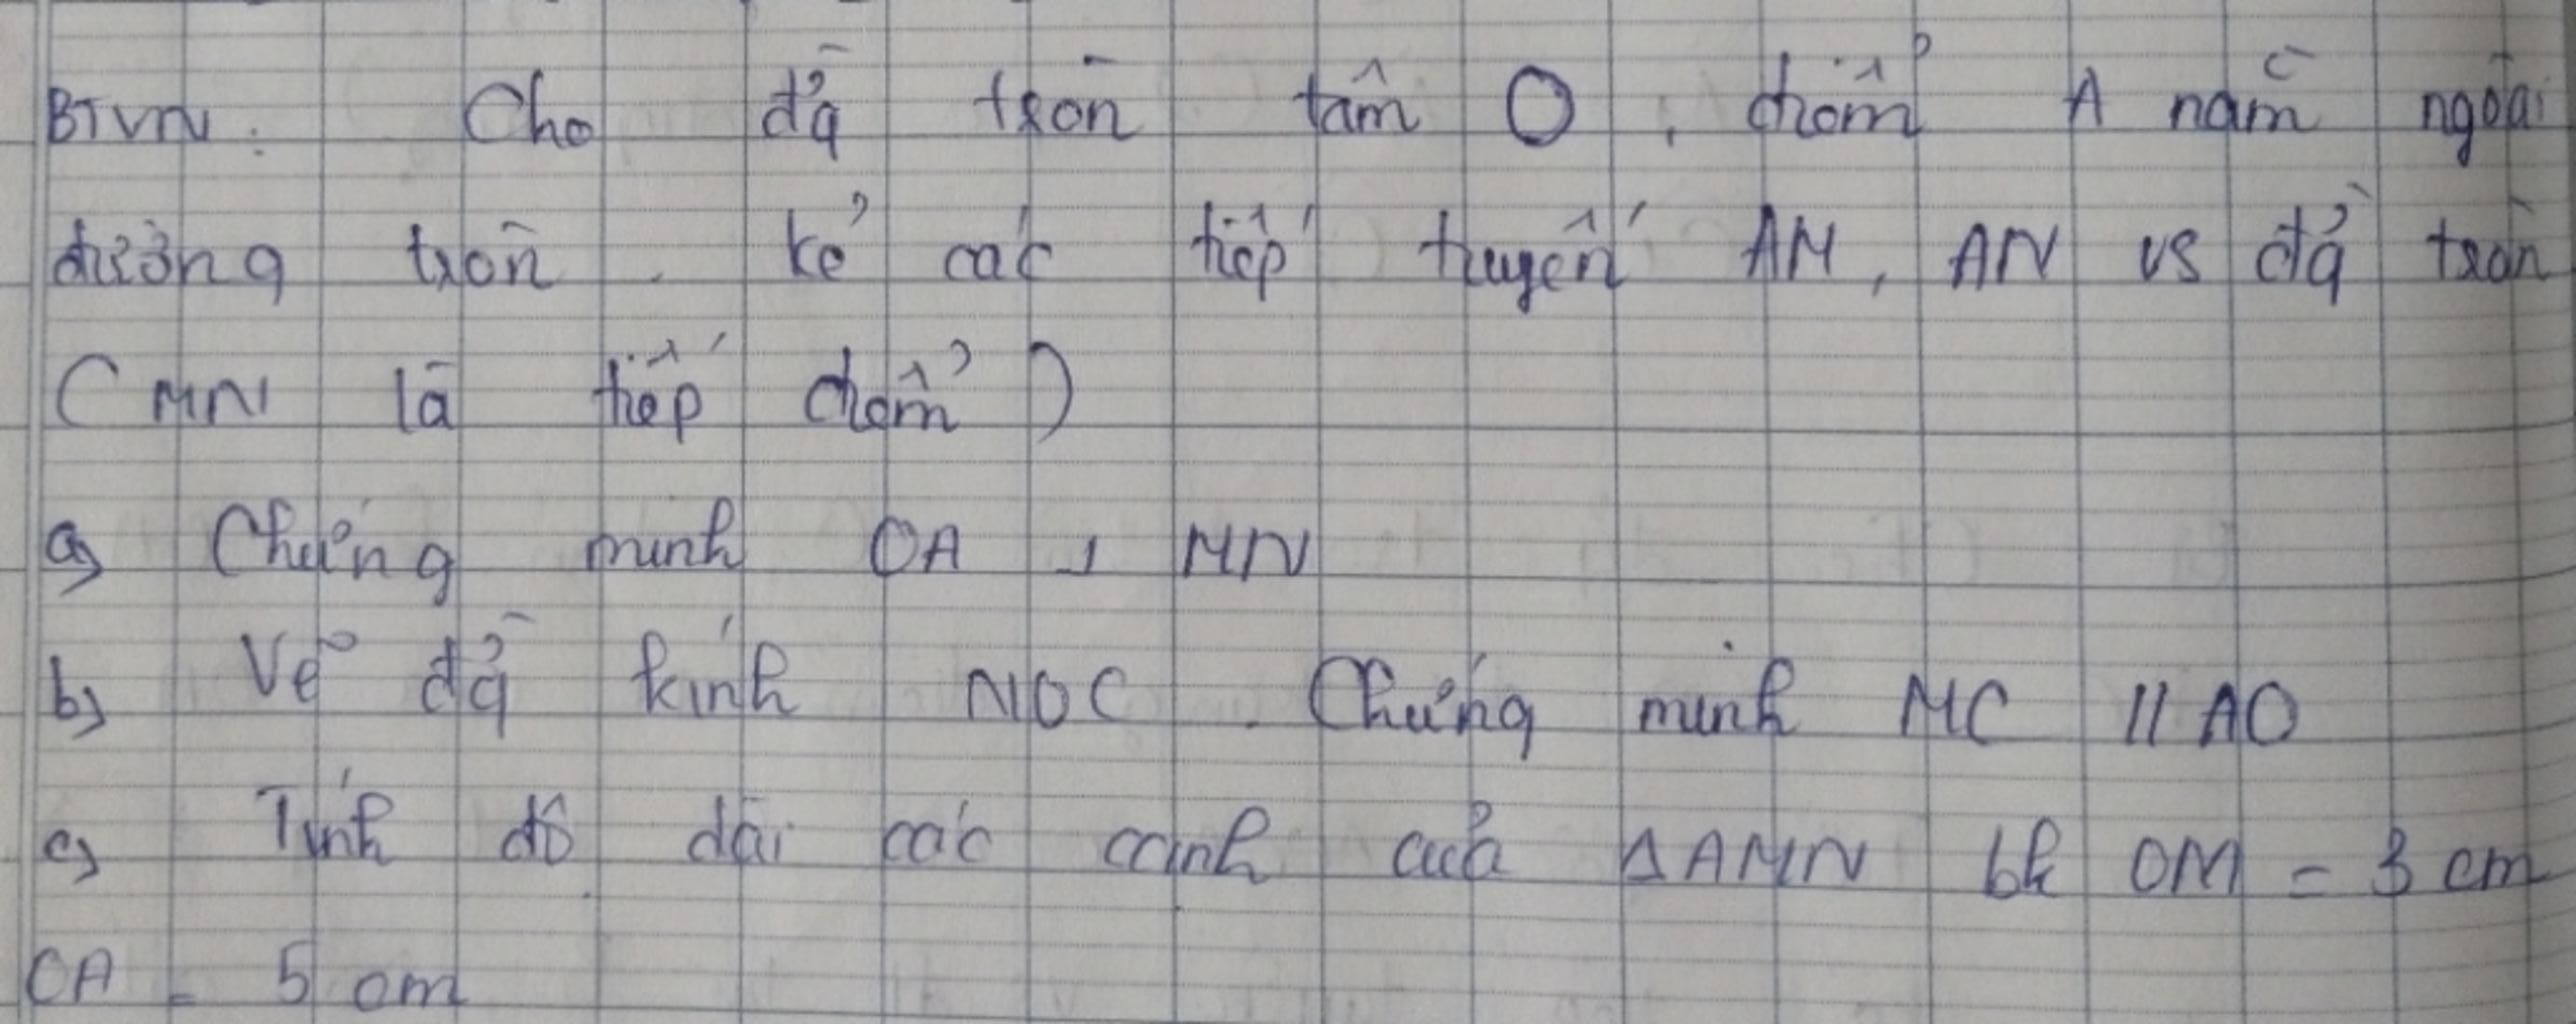 BTVN: Cho đg tròn tâm O, điểm A nằm ngoài
đường tròn. kẻ các tiếp tuyến AM, AN vs đg tròn
(MN là tiếp điểm)
a) Chứng minh OA ⊥ MN
b) Vẽ đg kính NOC. Chứng minh MC // AO
c) Tính độ dài các cạnh của ΔAMN bk OM = 3 cm
OA = 5 cm